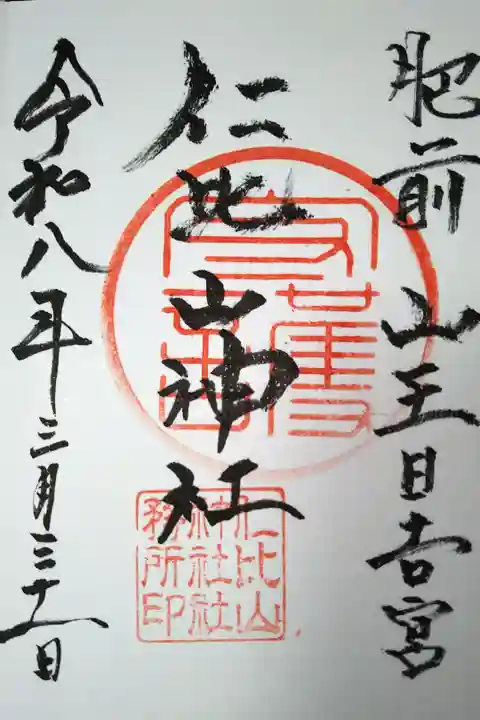 肥前 山王日吉宮
仁比山神社
仁比山
神社社
務所印
令和八年三月三十一日